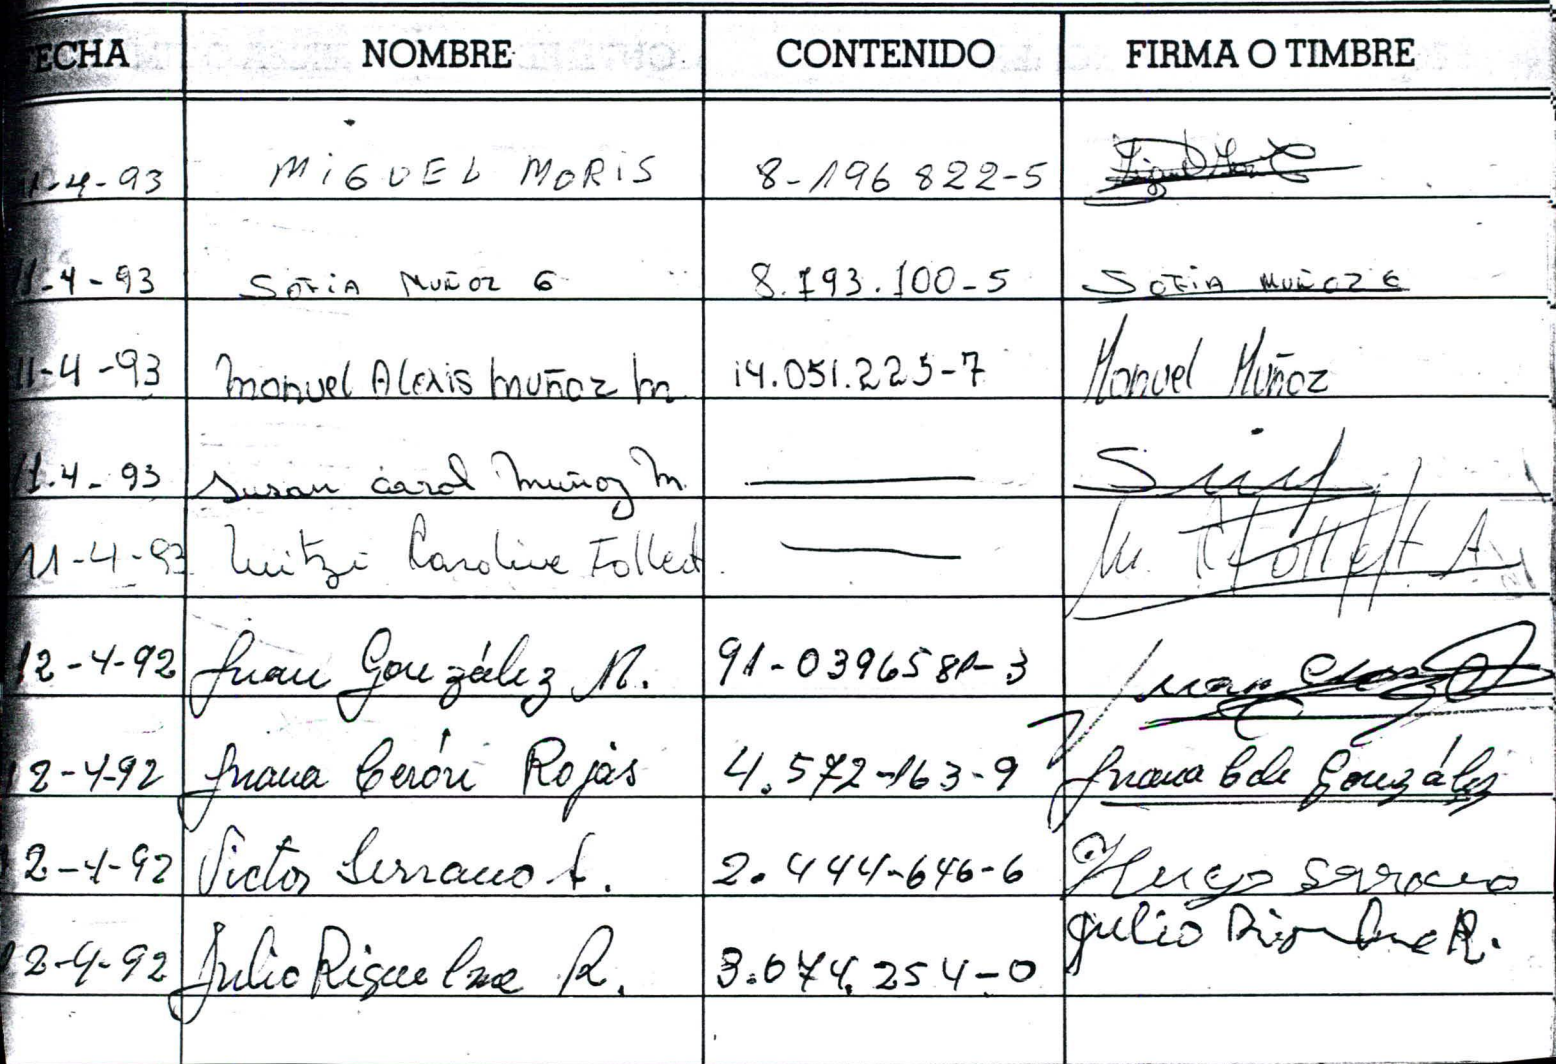 FECHA NOMBRE CONTENIDO FIRMA O TIMBRE
11-4-93 MIGUEL MORIS 8-196 822-5
11-4-93 SOFIA MUÑOZ G 8.793.100-5 SOFIA MUÑOZ G
11-4-93 Manuel Alexis Muñoz M. 14.051.225-7 Manuel Muñoz
11.4-93 Susan Carol Muñoz M.
11-4-93 Mitzi Caroline Follert M. Follert A
12-4-92 Juan González N. 91-0396581-3 Juan
12-4-92 Juana Cerón Rojas 4.572-163-9 Juana C de González
12-4-92 Victor Serrano 2.444-646-6 Hugo Serrano
12-4-92 Julio Riquelme R. 3.074.254-0 Julio Riquelme R.